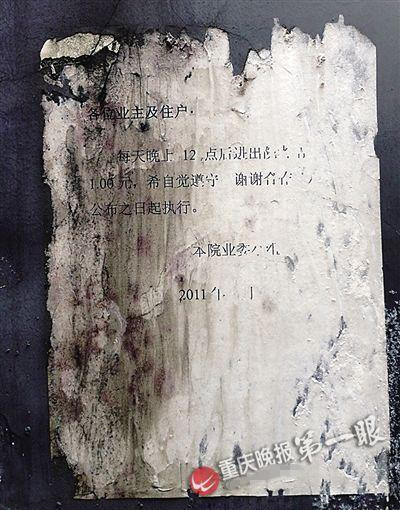 各位业主及住户:
每天晚上 12 点后进出
1.00元，希自觉遵守 谢谢合作
公布之日起执行。
本院业委
2011年
重庆晚报 第一眼